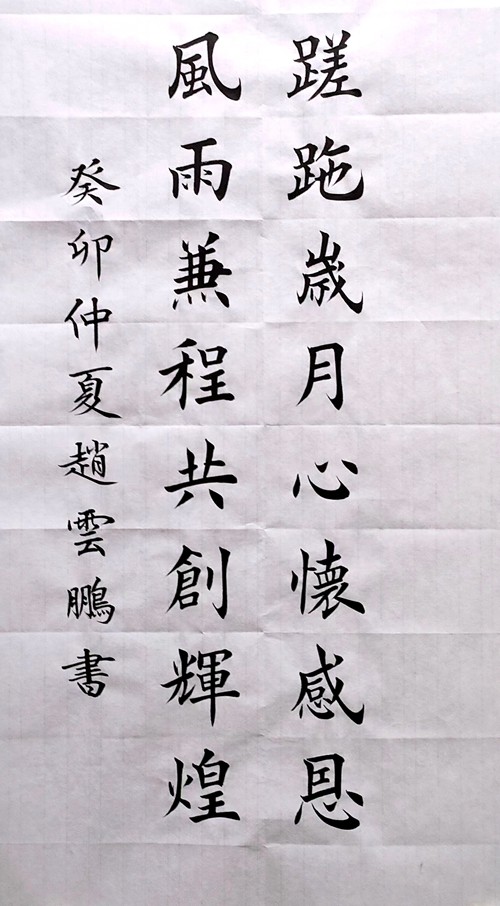 蹉跎歲月心懷感恩
風雨兼程共創輝煌
癸卯仲夏趙雲鵬書